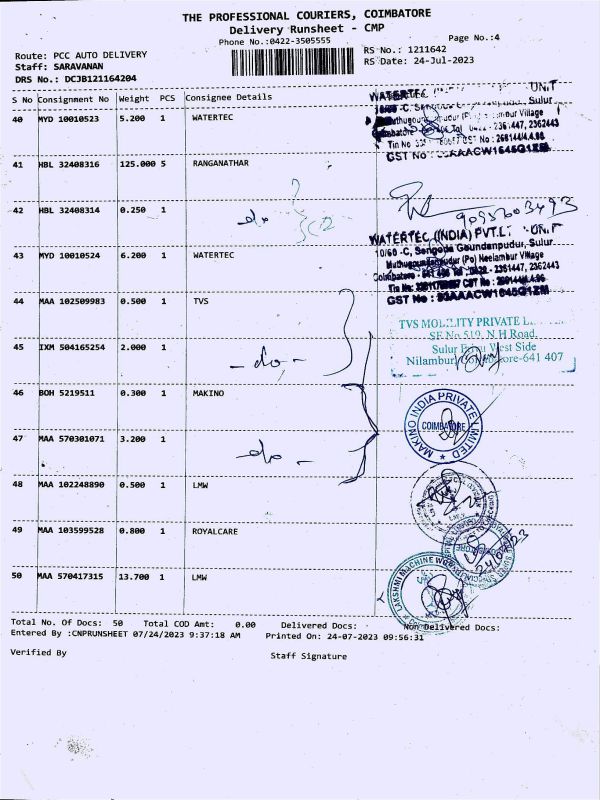 THE PROFESSIONAL COURIERS, COIMBATORE
Delivery Runsheet - CMP
Phone No.:0422-3505555
Page No.:4
Route: PCC AUTO DELIVERY
RS No.: 1211642
Staff: SARAVANAN
RS Date: 24-Jul-2023
DRS No.: DCJB121164204
S No Consignment No Weight PCS Consignee Details
40 MYD 10010523 5.200 1 WATERTEC
41 HBL 32408316 125.000 5 RANGANATHAR
42 HBL 32408314 0.250 1
do
43 MYD 10010524 6.200 1 WATERTEC
44 MAA 102509983 0.500 1 TVS
45 IXM 504165254 2.000 1
- do -
46 BOH 5219511 0.300 1 MAKINO
47 MAA 570301071 3.200 1
do -
48 MAA 102248890 0.500 1 LMW
49 MAA 103599528 0.800 1 ROYALCARE
50 MAA 570417315 13.700 1 LMW
WATERTEC UNIT
Sulur
Village
2361447, 2362443
GST No
9095603493
WATERTEC (INDIA) PVT.LT UNIT
10/60 -C, Sengoda Goundanpudur, Sulur
Muthugoundanpudur (Po) Neelambur Village
Coimbatore - 2361447, 2362443
GST No : 33AAACW1645Q1ZM
TVS MOBILITY PRIVATE
SF No 519, N H Road,
Sulur West Side
Nilambur, Coimbatore-641 407
MAKINO INDIA PRIVATE LIMITED
COIMBATORE
LAKSHMI MACHINE WORKS
Total No. Of Docs: 50 Total COD Amt: 0.00 Delivered Docs: Non Delivered Docs:
Entered By :CNPRUNSHEET 07/24/2023 9:37:18 AM Printed On: 24-07-2023 09:56:31
Verified By
Staff Signature